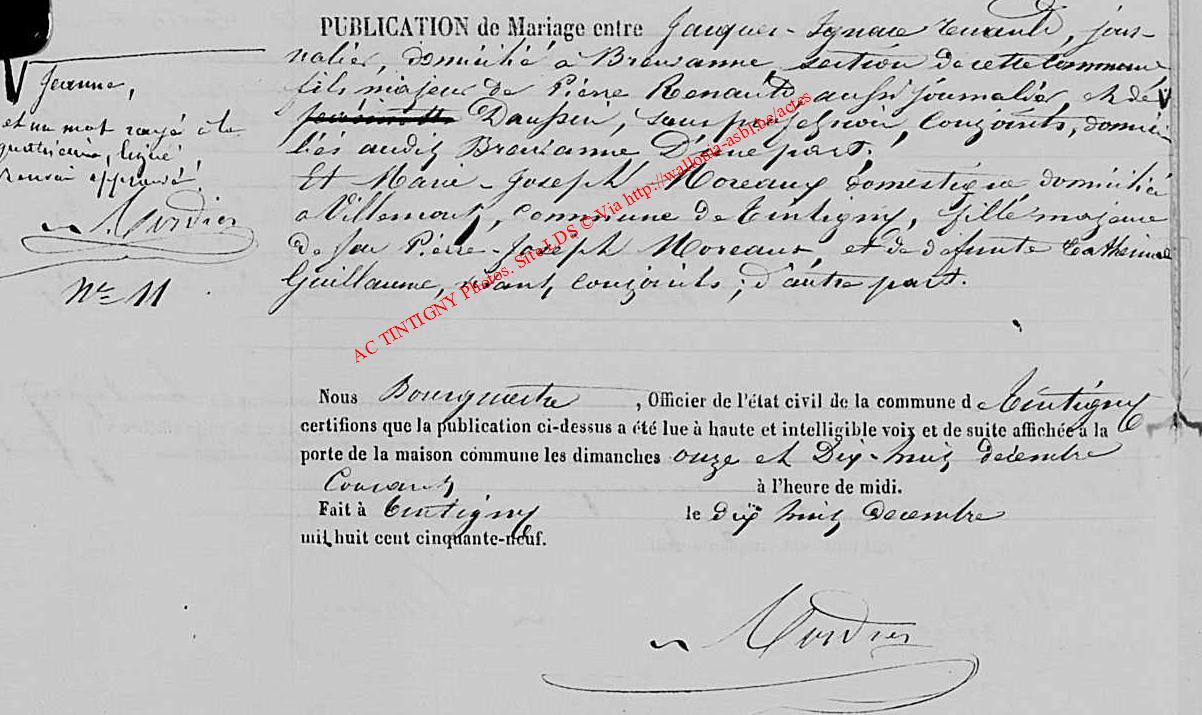 PUBLICATION de Mariage entre Jacques-Ignace Renauld, jour-
nalier, domicilié à Breuvanne, section de cette commune
fils majeur de Pierre Renauld, aussi journalier, et de
Daussin, sans profession, conjoints, domici-
liés audit Breuvanne, D'une part.
Et Marie-Joseph Moreaux domestique domiciliée
à Villemont, commune de Tintigny, fille majeure
de feu Pierre-Joseph Moreaux, et de défunte Catherine
Guillaume, vivant conjoints; d'autre part.
Jeanne,
et un mot rayé à la
quatrième ligne
renvoi approuvé.
N° 11
Nous Bourgmestre, Officier de l'état civil de la commune d Tintigny
certifions que la publication ci-dessus a été lue à haute et intelligible voix et de suite affichée à la
porte de la maison commune les dimanches onze et Dix-huit décembre
Courant à l'heure de midi.
Fait à Tintigny le dix huit Decembre
mil huit cent cinquante-neuf.
AC TINTIGNY Photos. Site LDS © Via http://wallonia-asbl.be/actes